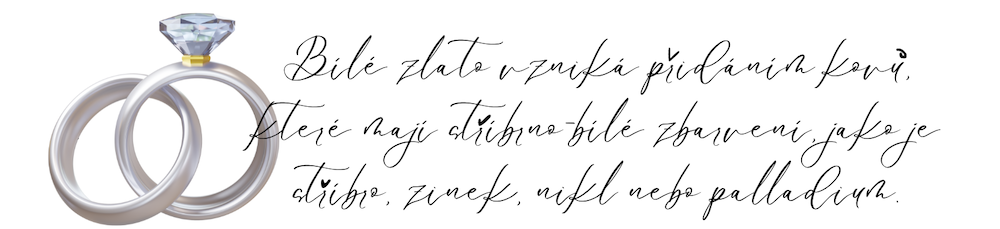 Bílé zlato vzniká přidáním kovů,
které mají stříbrno-bílé zbarvení, jako je
stříbro, zinek, nikl nebo palladium.